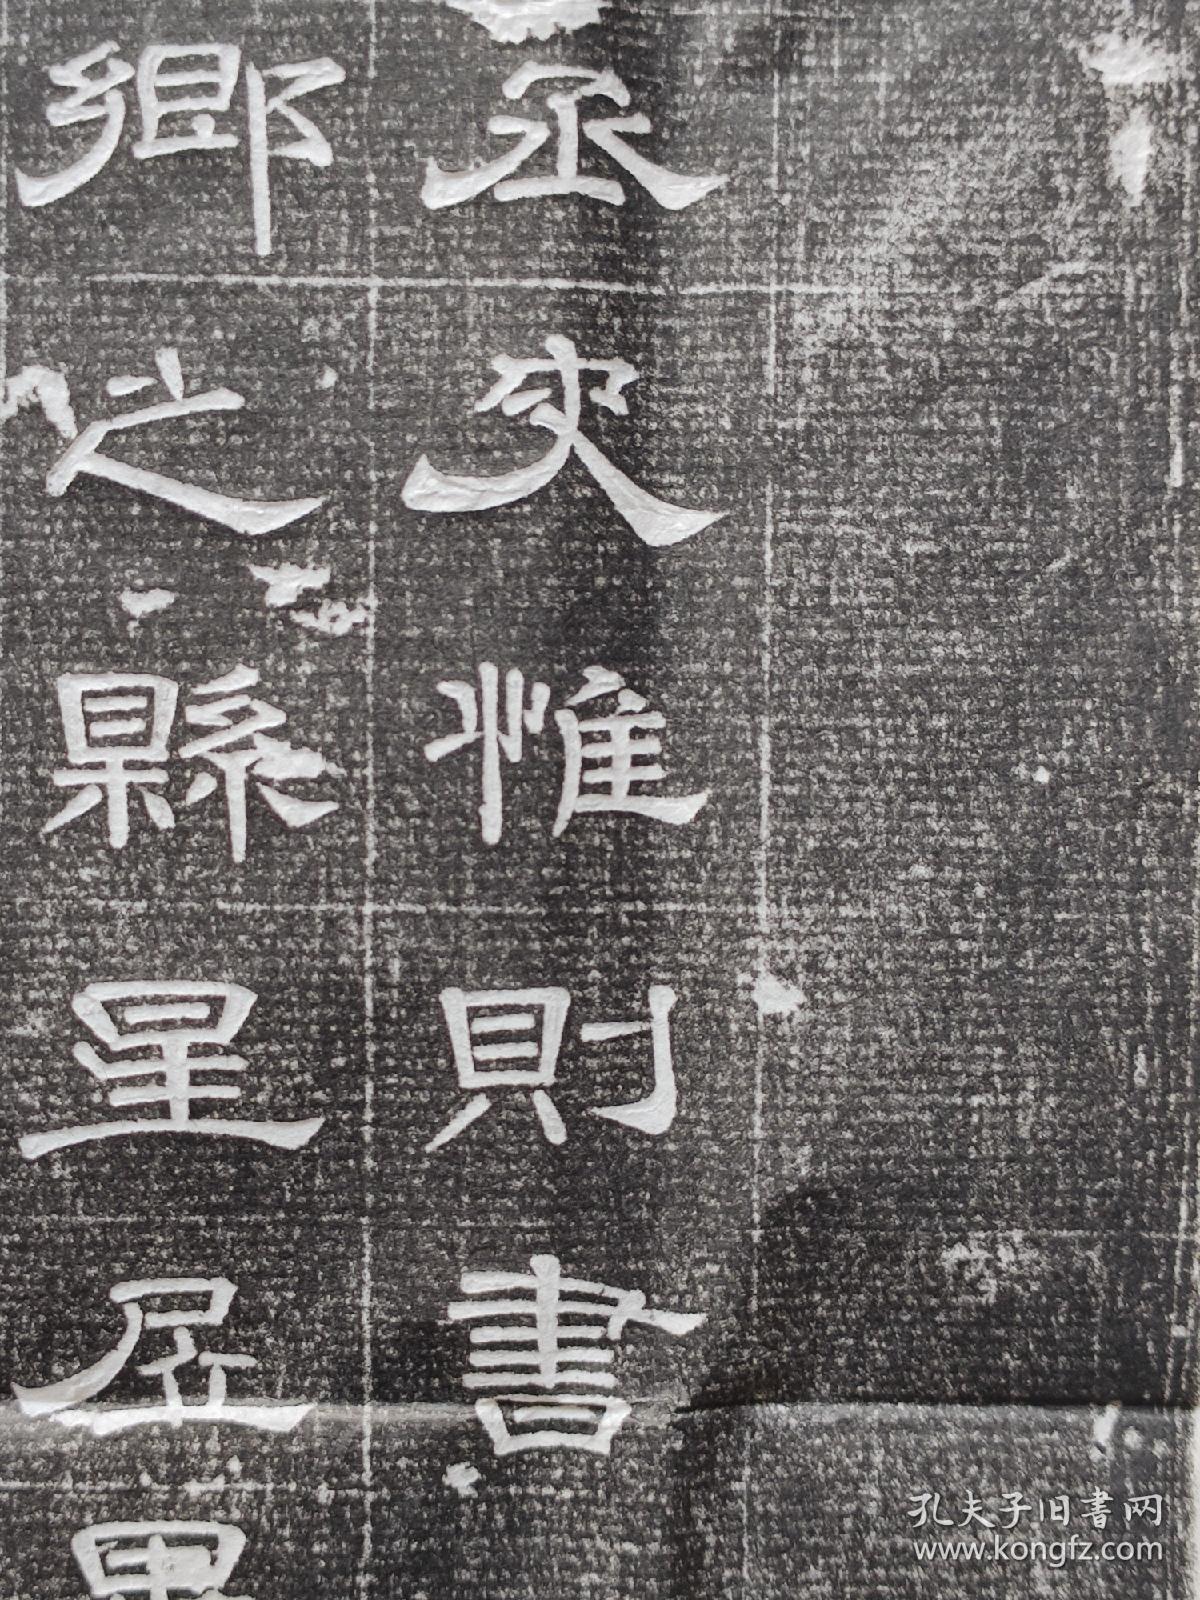 丞史惟則書
鄉之縣星
孔夫子旧書网
www.kongfz.com